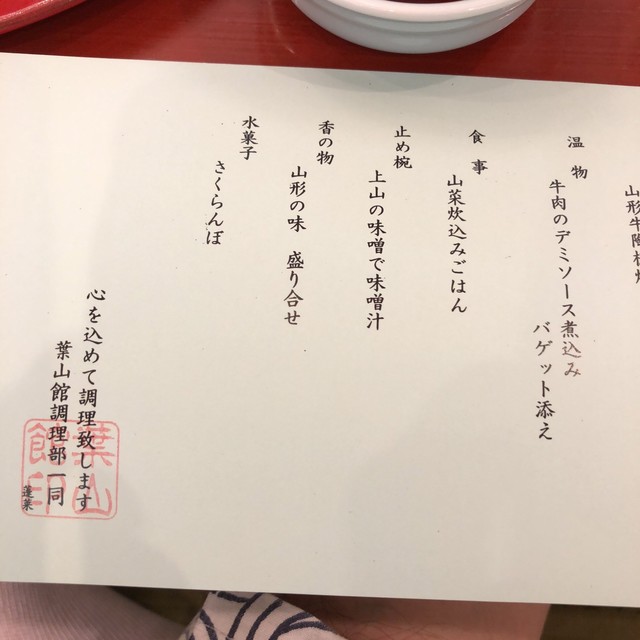 山形牛陶板焼
温物
牛肉のデミソース煮込み
バゲット添え
食事
山菜炊込みごはん
止め椀
上山の味噌で味噌汁
香の物
山形の味 盛り合せ
水菓子
さくらんぼ
心を込めて調理致します
葉山館調理部一同
蓬莱
葉山館印